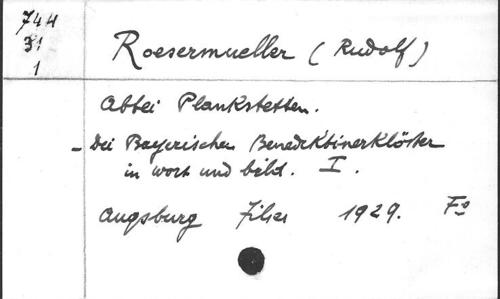 744
31
1
Roesermueller (Rudolf)
Abtei Plankstetten.
- Die Bayerischen Benedktinerklöster
in wort und bild. I.
Augsburg Filser 1929. Fº